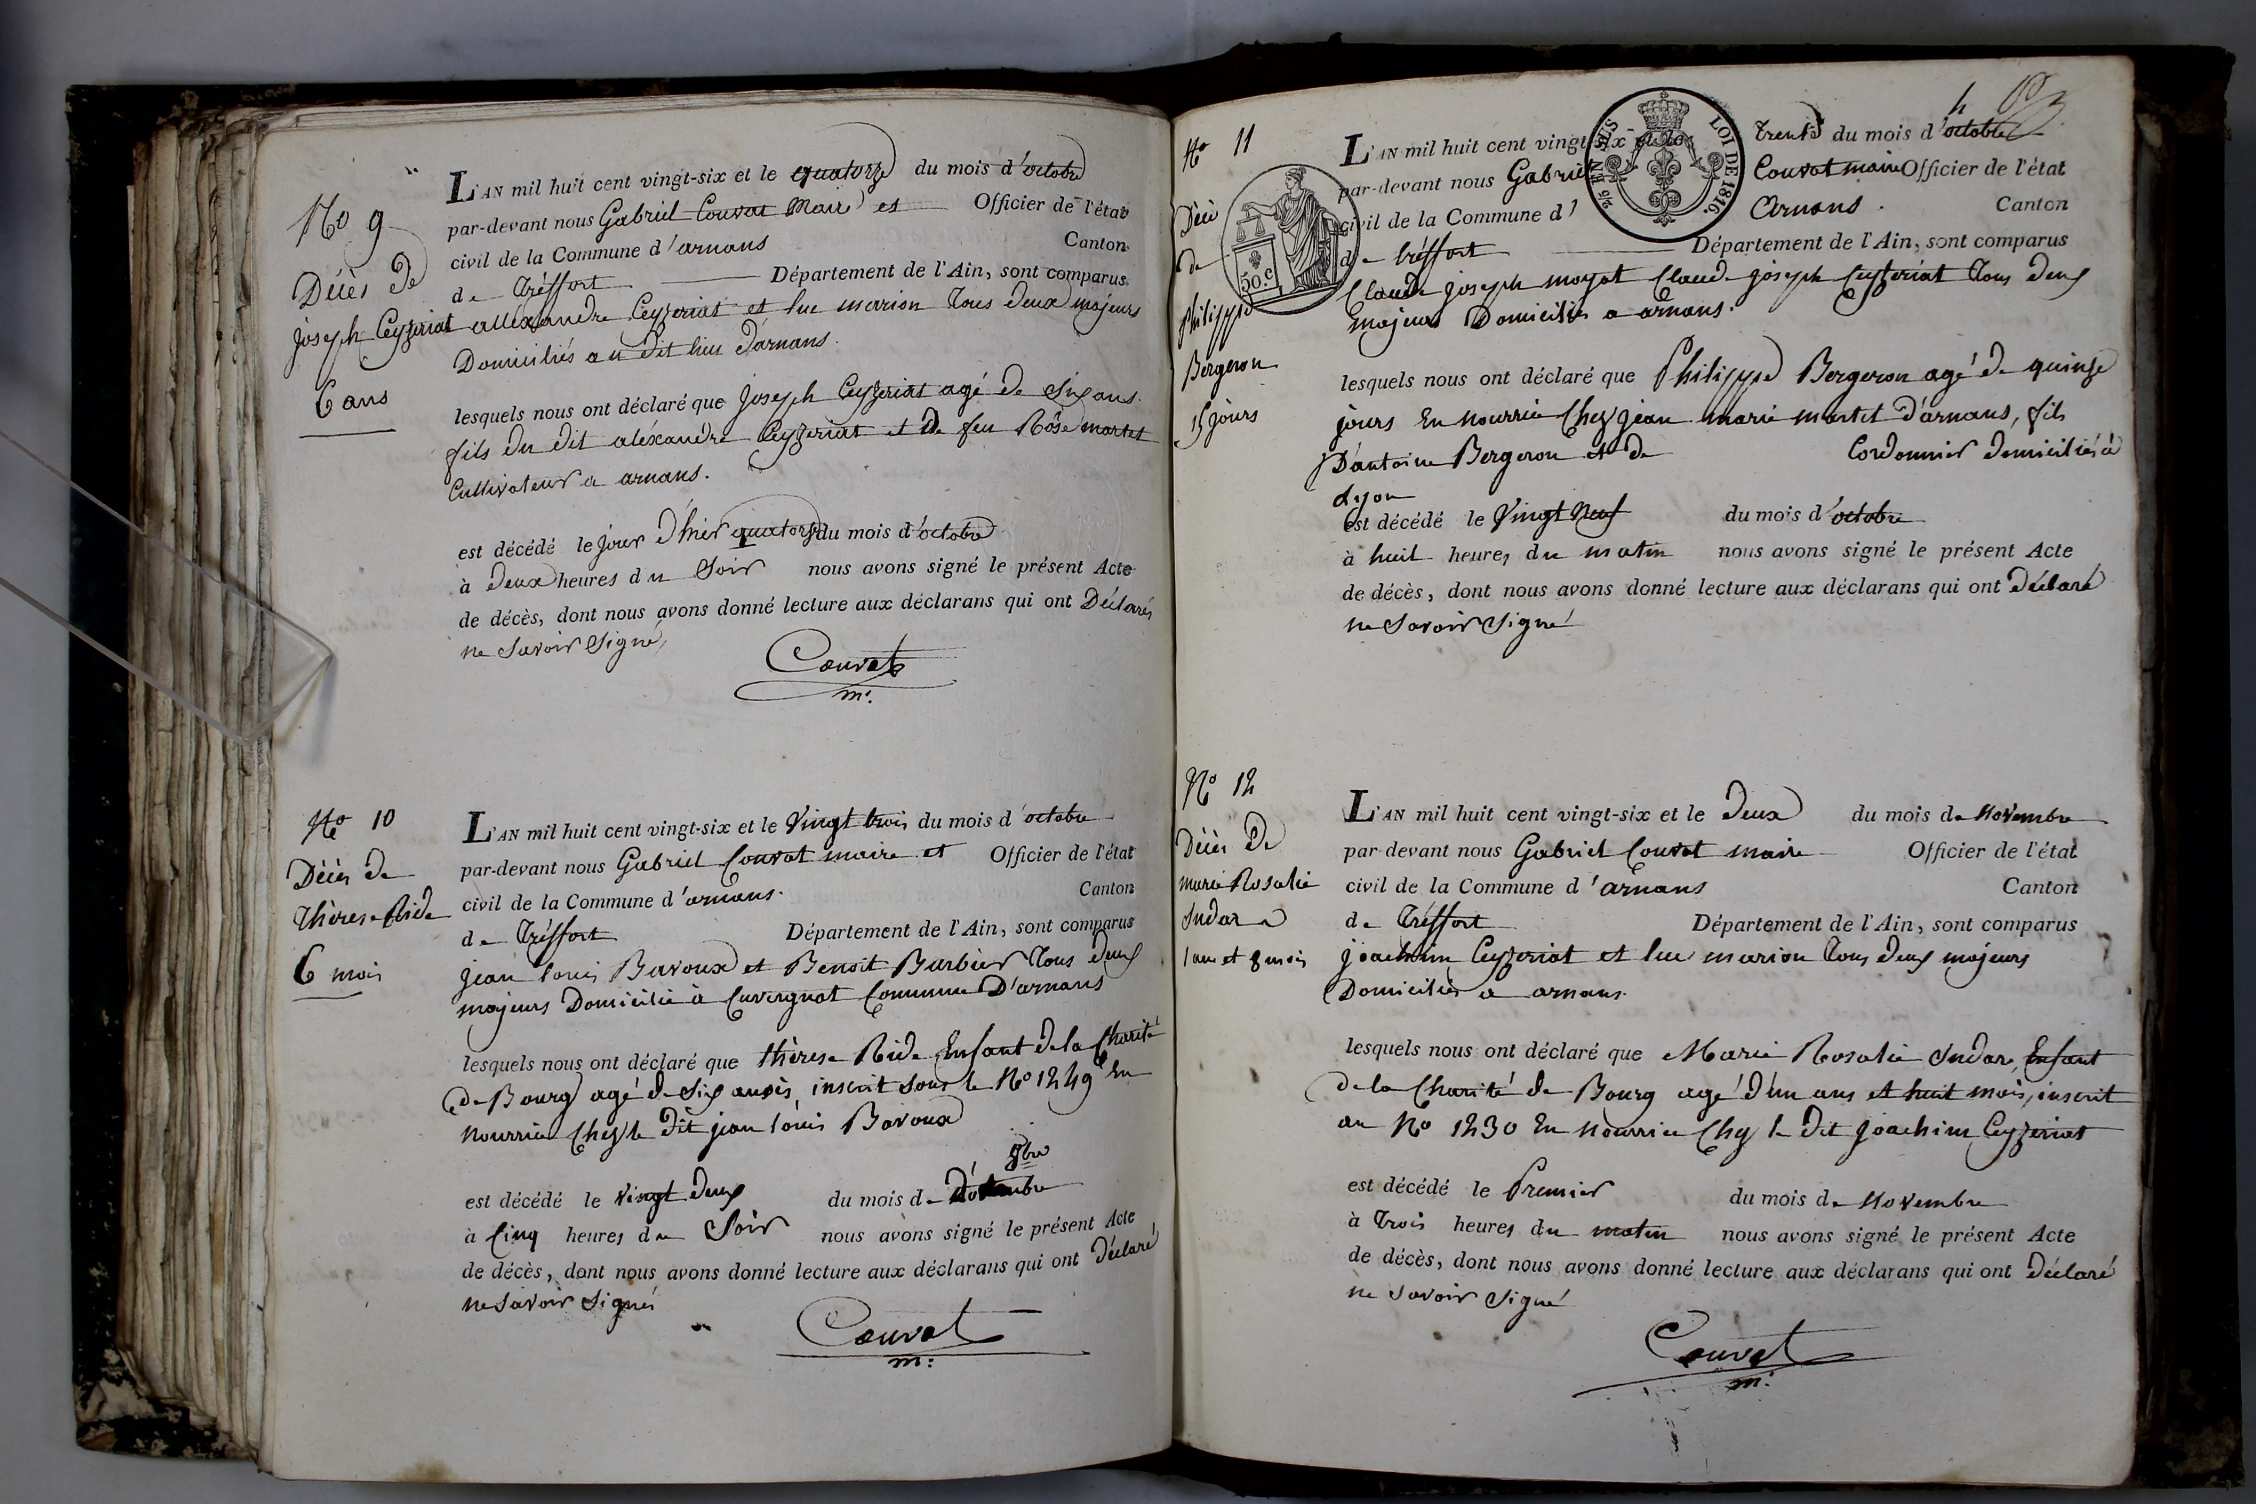 No 9
Décès de
joseph Ceyzeriat
6 ans
L'AN mil huit cent vingt-six et le quatorze du mois d'octobre
par-devant nous Gabriel Couvat Maire et Officier de l'état
civil de la Commune d'arnans Canton
de Tréffort Département de l'Ain, sont comparus
alléxandre Ceyzeriat et luc marion Tous deux majeurs
Domiciliés au dit lieu d'arnans.
lesquels nous ont déclaré que joseph Ceyzeriat agé de Six ans.
fils du dit aléxandre Ceyzeriat et de feu Rose martet
Cultivateur a arnans.
est décédé le jour d'hier quatorze du mois d'octobre
à deux heures du Soir nous avons signé le présent Acte
de décès, dont nous avons donné lecture aux déclarans qui ont Déclarés
ne Savoir Signé,
Couvat
m.
No 10
Décès de
Thèrese Ride
6 mois
L'AN mil huit cent vingt-six et le Vingt trois du mois d'octobre
par-devant nous Gabriel Couvat maire et Officier de l'état
civil de la Commune d'arnans. Canton
de Tréffort Département de l'Ain, sont comparus
jean louis Bavoux et Benoit Barbier Tous deux
majeurs Domicilié à Cuvergnat Commune D'arnans
lesquels nous ont déclaré que thèrese Ride Enfant de la Charité
de Bourg agé de Six inscrit sous le No 1249 En
nourrice Chez le dit jean louis Bavoux
8bre
est décédé le Vingt deux du mois de
à Cinq heures du Soir nous avons signé le présent Acte
de décès, dont nous avons donné lecture aux déclarans qui ont Déclaré
ne Savoir Signés
Couvat
m:
No 11
Décè
de
Philippe
Bergeron
15 jours
50.c
25 EN SUS
LOI DE 1816.
L'AN mil huit cent vingt-six et le Trente du mois d'octobre
par-devant nous Gabriel Couvat maire Officier de l'état
civil de la Commune d' Arnans. Canton
de tréffort Département de l'Ain, sont comparus
Claude joseph moyat Claude joseph Ceyzeriat Tous deux
majeurs Domiciliés a arnans.
lesquels nous ont déclaré que Philippe Bergeron agé de quinze
jours En nourrice Chez jean marie martet d'arnans, fils
D'antoine Bergeron et de Cordonnier domiciliés à
Lyon
est décédé le Vingt Neuf du mois d'octobre
à huit heures du matin nous avons signé le présent Acte
de décès, dont nous avons donné lecture aux déclarans qui ont Déclaré
ne Savoir Signé
No 12
Décès de
marie Rosalie
Sudar
1 an et 8 mois
L'AN mil huit cent vingt-six et le Deux du mois de Novembre
par-devant nous Gabriel Couvat maire Officier de l'état
civil de la Commune d'arnans Canton
de Tréffort Département de l'Ain, sont comparus
joachim Ceyzeriat et luc marion Tous deux majeurs
Domiciliés a arnans.
lesquels nous ont déclaré que Marie Rosalie Sudar, Enfant
de la Charité de Bourg agé d'un ans et huit mois, inscrit
au No 1230 En nourrice Chez le dit joachim Ceyzeriat
est décédé le Premier du mois de Novembre
à Trois heures du matin nous avons signé le présent Acte
de décès, dont nous avons donné lecture aux déclarans qui ont Déclaré
ne Savoir Signé
Couvat
m.